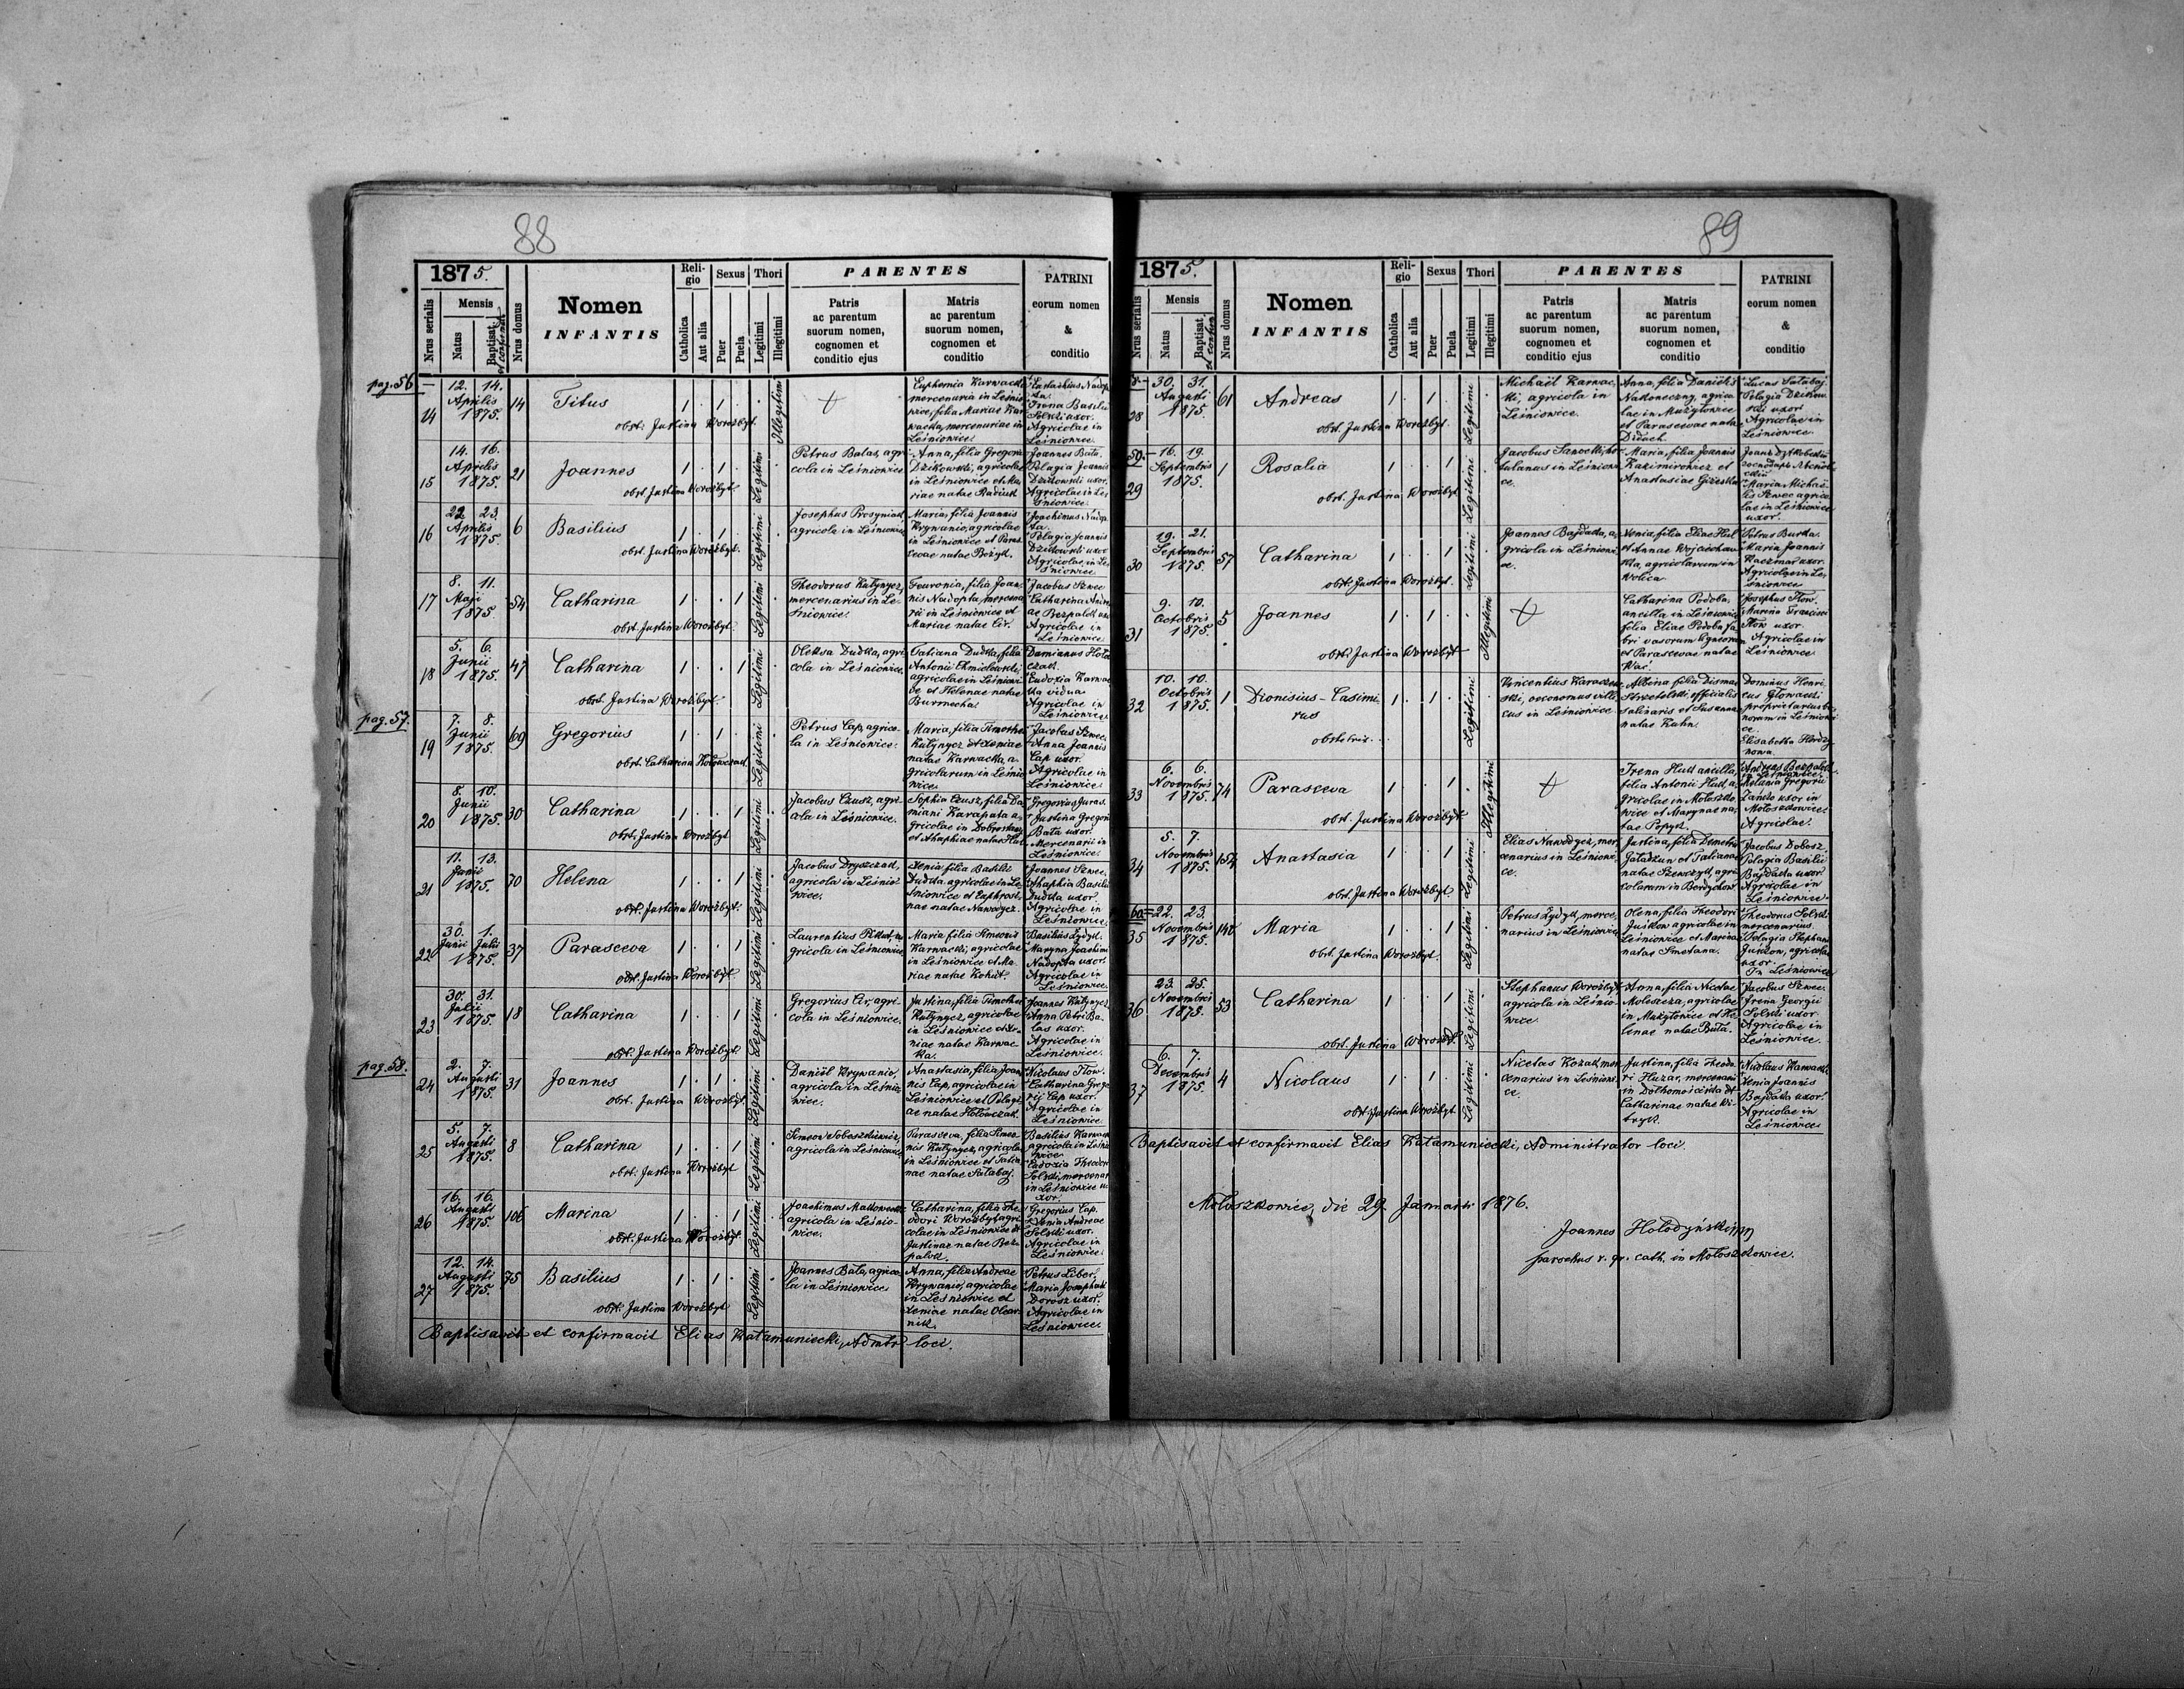 88
1875.
Nrus serialis
Mensis
Natus
Baptisat.
et confirmat.
Nrus domus
Nomen
INFANTIS
Reli-
gio
Catholica
Aut alia
Sexus
Puer
Puela
Thori
Legitimi
Illegitimi
PARENTES
Patris
ac parentum
suorum nomen,
cognomen et
conditio ejus
Matris
ac parentum
suorum nomen,
cognomen et
conditio
PATRINI
eorum nomen
&
conditio
pag. 56
14
12. 14.
Aprilis
1875.
14
Titus
obst. Justina Worożbyt.
1 . 1 .
Illegitimi
+
Euphemia Karwacka
mercenaria in Leśnio-
wice, filia Mariae Kar
wacka, mercenariae in
Leśniowice.
Irena Basilii
Solski uxor.
Agricolae in
Leśniowice.
15
14. 16.
Aprilis
1875.
21
Joannes
obst. Justina Worożbyt.
1 . 1 .
Legitimi
Petrus Balas, agri-
cola in Leśniowice
Anna, filia Gregorii
Dzikowski, agricolae
in Leśniowice et Ma
riae natae
Joannes Bata.
Pelagia Joannis
Dzikowski uxor.
Agricolae in Leś
niowice.
16
22. 23.
Aprilis
1875
6
Basilius
obst. Justina Worożbyt.
1 . 1 .
Legitimi
Josephus Prosyniak
agricola in Leśniowice
Maria, filia Joannis
Krywanio, agricolae
in Leśniowice et Paras
cevae natae Bożyk.
Joachimus Nadop
ta.
Pelagia Joannis
Dzikowski uxor
Agricolae in Le
śniowice.
17
8. 11.
Maji
1875
54
Catharina
obst. Justina Worożbyt.
1 . . 1
Legitimi
Theodorus Kutynycz,
mercenarius in Le-
śniowice.
Fevronia, filia Joan-
nis Nadopta, mercena
rii in Leśniowice et
Mariae natae Cir.
Jacobus Szwec
Catharina Andre
ae Bezpalko uxor
Agricolae in
Leśniowice.
18
5. 6.
Junii
1875.
47
Catharina
obst. Justina Worożbyt.
1 . . 1
Legitimi
Oleksa Dudka, agri
cola in Leśniowice.
Tatiana Dudka, filia
Antonii Chmielowski,
agricolae in Leśniowi
ce et Helenae natae
Burmecha.
Damianus Hoło
czak.
Eudoxia Karwac
ka vidua
Agricolae in
Leśniowice.
pag. 57.
19
7. 8.
Junii
1875.
69
Gregorius
obst. Catharina Hołowczak.
1 . 1 .
Legitimi
Petrus Cap, agrico-
la in Leśniowice.
Maria, filia Timothei
Kutynycz et Xeniae
natae Karwacka, a-
gricolarum in Leśnio
wice.
Jacobus Szwec.
Anna Joannis
Cap uxor.
Agricolae in
Leśniowice.
20
8. 10.
Junii
1875.
30
Catharina
obst. Justina Worożbyt
1 . . 1
Legitimi
Jacobus Czusz, agri-
cola in Leśniowice.
Sophia Czusz, filia Da
miani Karapata a-
gricolae in Dobrostany
et Ahaphiae natae Hul
Gregorius Juras.
Justina Gregorii
Bata uxor.
Mercenarii in
Leśniowice.
21
11. 13.
Junii
1875.
70
Helena
obst. Justina Worożbyt.
1 . . 1
Legitimi
Jacobus Dryszczak,
agricola in Leśnio-
wice.
Xenia filia Basilii
Dudka agricolae in Le
śniowice et Euphrosi
nae natae Nawodycz.
Joannes Szwec.
Ahaphia Basilii
Dudka uxor.
Agricolae in
Leśniowice.
22
30. 1.
Junii Julii
1875.
37
Parasceva
obst. Justina Worożbyt
1 . . 1
Legitimi
gricola in Leśniowice
Maria, filia Simeonis
Karwacki, agricolae
in Leśniowice et Ma-
riae natae Kohut.
Basilius Łydyk.
Maryna Joachimi
Nadopta uxor.
Agricolae in
Leśniowice.
23
30. 31.
Julii
1875.
18
Catharina
obst. Justina Worożbyt.
1 . . 1
Legitimi
Gregorius Cir, agri-
cola in Leśniowice.
Justina, filia Timothei
Kutynycz, agricolae
in Leśniowice et Xe-
niae natae Karwac-
ka.
Joannes Kutynycz
Anna Petri Ba-
las uxor.
Agricolae in
Leśniowice.
pag. 58.
24
2. 7.
Augusti
1875.
31
Joannes
obst. Justina Worożbyt.
1 . 1 .
Legitimi
Daniël Krywanio,
agricola in Leśnio-
wice.
Anastasia, filia Joan
nis Cap, agricolae in
Leśniowice et Pelagi
ae natae Hołowczak.
Nicolaus Tkow.
Catharina Grego
rii Cap uxor.
Agricolae in
Leśniowice.
25
5. 7.
Augusti
1875.
8
Catharina
obst. Justina Worożbyt
1 . . 1
Legitimi
Simeon Soboszkiewicz,
agricola in Leśniowice
Parasceva, filia Simeo
nis Kutynycz, agricolae
in Leśniowice et Tatia
nae natae Sałabaj.
Basilius Karwacki
agricola in Leśnio
wice.
Eudoxia Theodori
Solski, mercenar
in Leśniowice u-
xor.
26
16. 16.
Augusti
1875.
106
Marina
obst. Justina Worożbyt.
1 . . 1
Legitimi
agricola in Leśnio-
wice.
Catharina, filia The
odori Worożbyt, agri
colae in Leśniowice et
Justinae natae Bez-
palok.
Gregorius Cap.
Xenia Andreae
Solski uxor.
Agricolae in
Leśniowice.
27
12. 14.
Augusti
1875.
75
Basilius
obst. Justina Worożbyt
1 . 1 .
Legitimi
Joannes Bata, agrico-
la in Leśniowice
Anna, filia Andreae
Krywanio, agricolae
in Leśniowice et
Xeniae natae Olear-
nik.
Petrus Liber.
Maria Josephi
Dorosz uxor.
Agricolae in
Leśniowice.
Baptisavit et confirmavit Elias Katamuniecki, Admtr loci.
89
1875.
Nrus serialis
Mensis
Natus
Baptisat.
Nrus domus
Nomen
INFANTIS
Reli-
gio
Catholica
Aut alia
Sexus
Puer
Puela
Thori
Legitimi
Illegitimi
PARENTES
Patris
ac parentum
suorum nomen,
cognomen et
conditio ejus
Matris
ac parentum
suorum nomen,
cognomen et
conditio
PATRINI
eorum nomen
&
conditio
28
30. 31.
Augusti
1875
61
Andreas
obst. Justina Worożbyt.
1 . 1 .
Legitimi
Michaël Karwac-
ki, agricola in
Leśniowice.
Anna, filia Danielis
Nakoneczny, agrico
lae in Mużyłowice
et Parascevae natae
Didach.
Lucas Sałabaj.
Pelagia Dzikow
ski uxor
Agricolae in
Leśniowice.
29
16. 19.
Septembris
1875.
1
Rosalia
obst. Justina Worożbyt
1 . . 1
Legitimi
Jacobus Sanocki, ho
tulanus in Leśniowi
ce.
Maria, filia Joannis
Kazimirowicz et
Anastasiae
Maria Micha
lis Szwec agrico
lae in Leśniowice
uxor.
30
19. 21.
Septembris
1875.
57
Catharina
obst. Justina Worożbyt
1 . . 1
Legitimi
Joannes Bajdałka, a-
gricola in Leśniowi
ce.
Xenia, filia Eliae Hul
et Annae Wojciechow
ska, agricolarum in
Wolica.
Petrus Burka.
Maria Joannis
Kaczmar uxor.
Agricolae in Le
śniowice.
31
9. 10.
Octobris
1875.
5
Joannes
obst. Justina Worożbyt
1 . 1 .
Illegitimi
+
Catharina Podoba,
ancilla in Leśniowice
filia Eliae Podoba fa
bri vasorum ligneorum
et Parascevae natae
Josephus Tkow.
Marina Francisci
Tkow uxor.
Agricolae in
Leśniowice.
32
10. 10.
Octobris
1875.
1
Dionisius-Casimi-
rus
obstetrix. . .
1 . 1 .
Legitimi
Vincentius Karaczew
ski, oeconomus villi
cus in Leśniowice
Albina filia Dismae
Strzetelski, officialis
salinaris et Susannae
natae Kuhn.
Dominus Henri-
cus Głowacki
proprietarius bo
norum in Leśniowi
ce.
Elisabetha
33
6. 6.
Novembris
1875.
74
Parasceva
obst. Justina Worożbyt
1 . . 1
Illegitimi
+
Irena Hull ancilla,
filia Antonii Hull, a-
gricolae in Mołoszko
wice et Marynae na-
tae Popyk.
Andreas Bezpałok
in Leśniowice.
Melania Gregorii
uxor in
Mołoszkowice
Agricolae.
34
5. 7.
Novembris
1875.
154
Anastasia
obst. Justina Worożbyt
1 . . 1
Legitimi
Elias Nawodycz, mer
cenarius in Leśniowi
ce.
Justina, filia Demetrii
Gaładzun et Tatianae
natae Szewczyk, agri
colarum in Berdychow.
Jacobus Dobosz.
Pelagia Basilii
Bajdałka uxor
Agricolae in
Leśniowice.
35
22. 23.
Novembris
1875.
Maria
obst. Justina Worożbyt.
1 . . 1
Legitimi
Petrus Łydyk, merce
narius in Leśniowice
Olena, filia Theodori
Juśkow agricolae in
Leśniowice et Marina
natae Smetana.
Theodorus Solski
mercenarius.
Pelagia Stephani
Juskow, agricolae
uxor.
In Leśniowice
36
23. 25.
Novembris
1875.
53
Catharina
obst. Justina Worożbyt
1 . . 1
Legitimi
Stephanus Worożbyt
agricola in Leśnio-
wice.
Anna, filia Nicolae
Moloszcza, agricolae
in Mużyłowice et He
lenae natae Buta.
Jacobus Szwec.
Irena Georgii
Solski uxor.
Agricolae in
Leśniowice.
37
6. 7.
Decembris
1875.
4
Nicolaus
obst. Justina Worożbyt
1 . 1 .
Legitimi
Nicetas Kozak, mer
cenarius in Leśniowi
ce.
Justina, filia Theodo
ri Huzar, mercenarii
in Dołhomościska et
Catharinae natae Wi-
tryk.
Nicolaus Karwacki
Xenia Joannis
Bajdałka uxor.
Agricolae in
Leśniowice
Baptisavit et confirmavit Elias Katamuniecki, Administrator loci.
Mołoszkowice, die 29. Januarii 1876.
Joannes Hołodyński mp
parochus r. gr. cath. in Mołoszkowice.